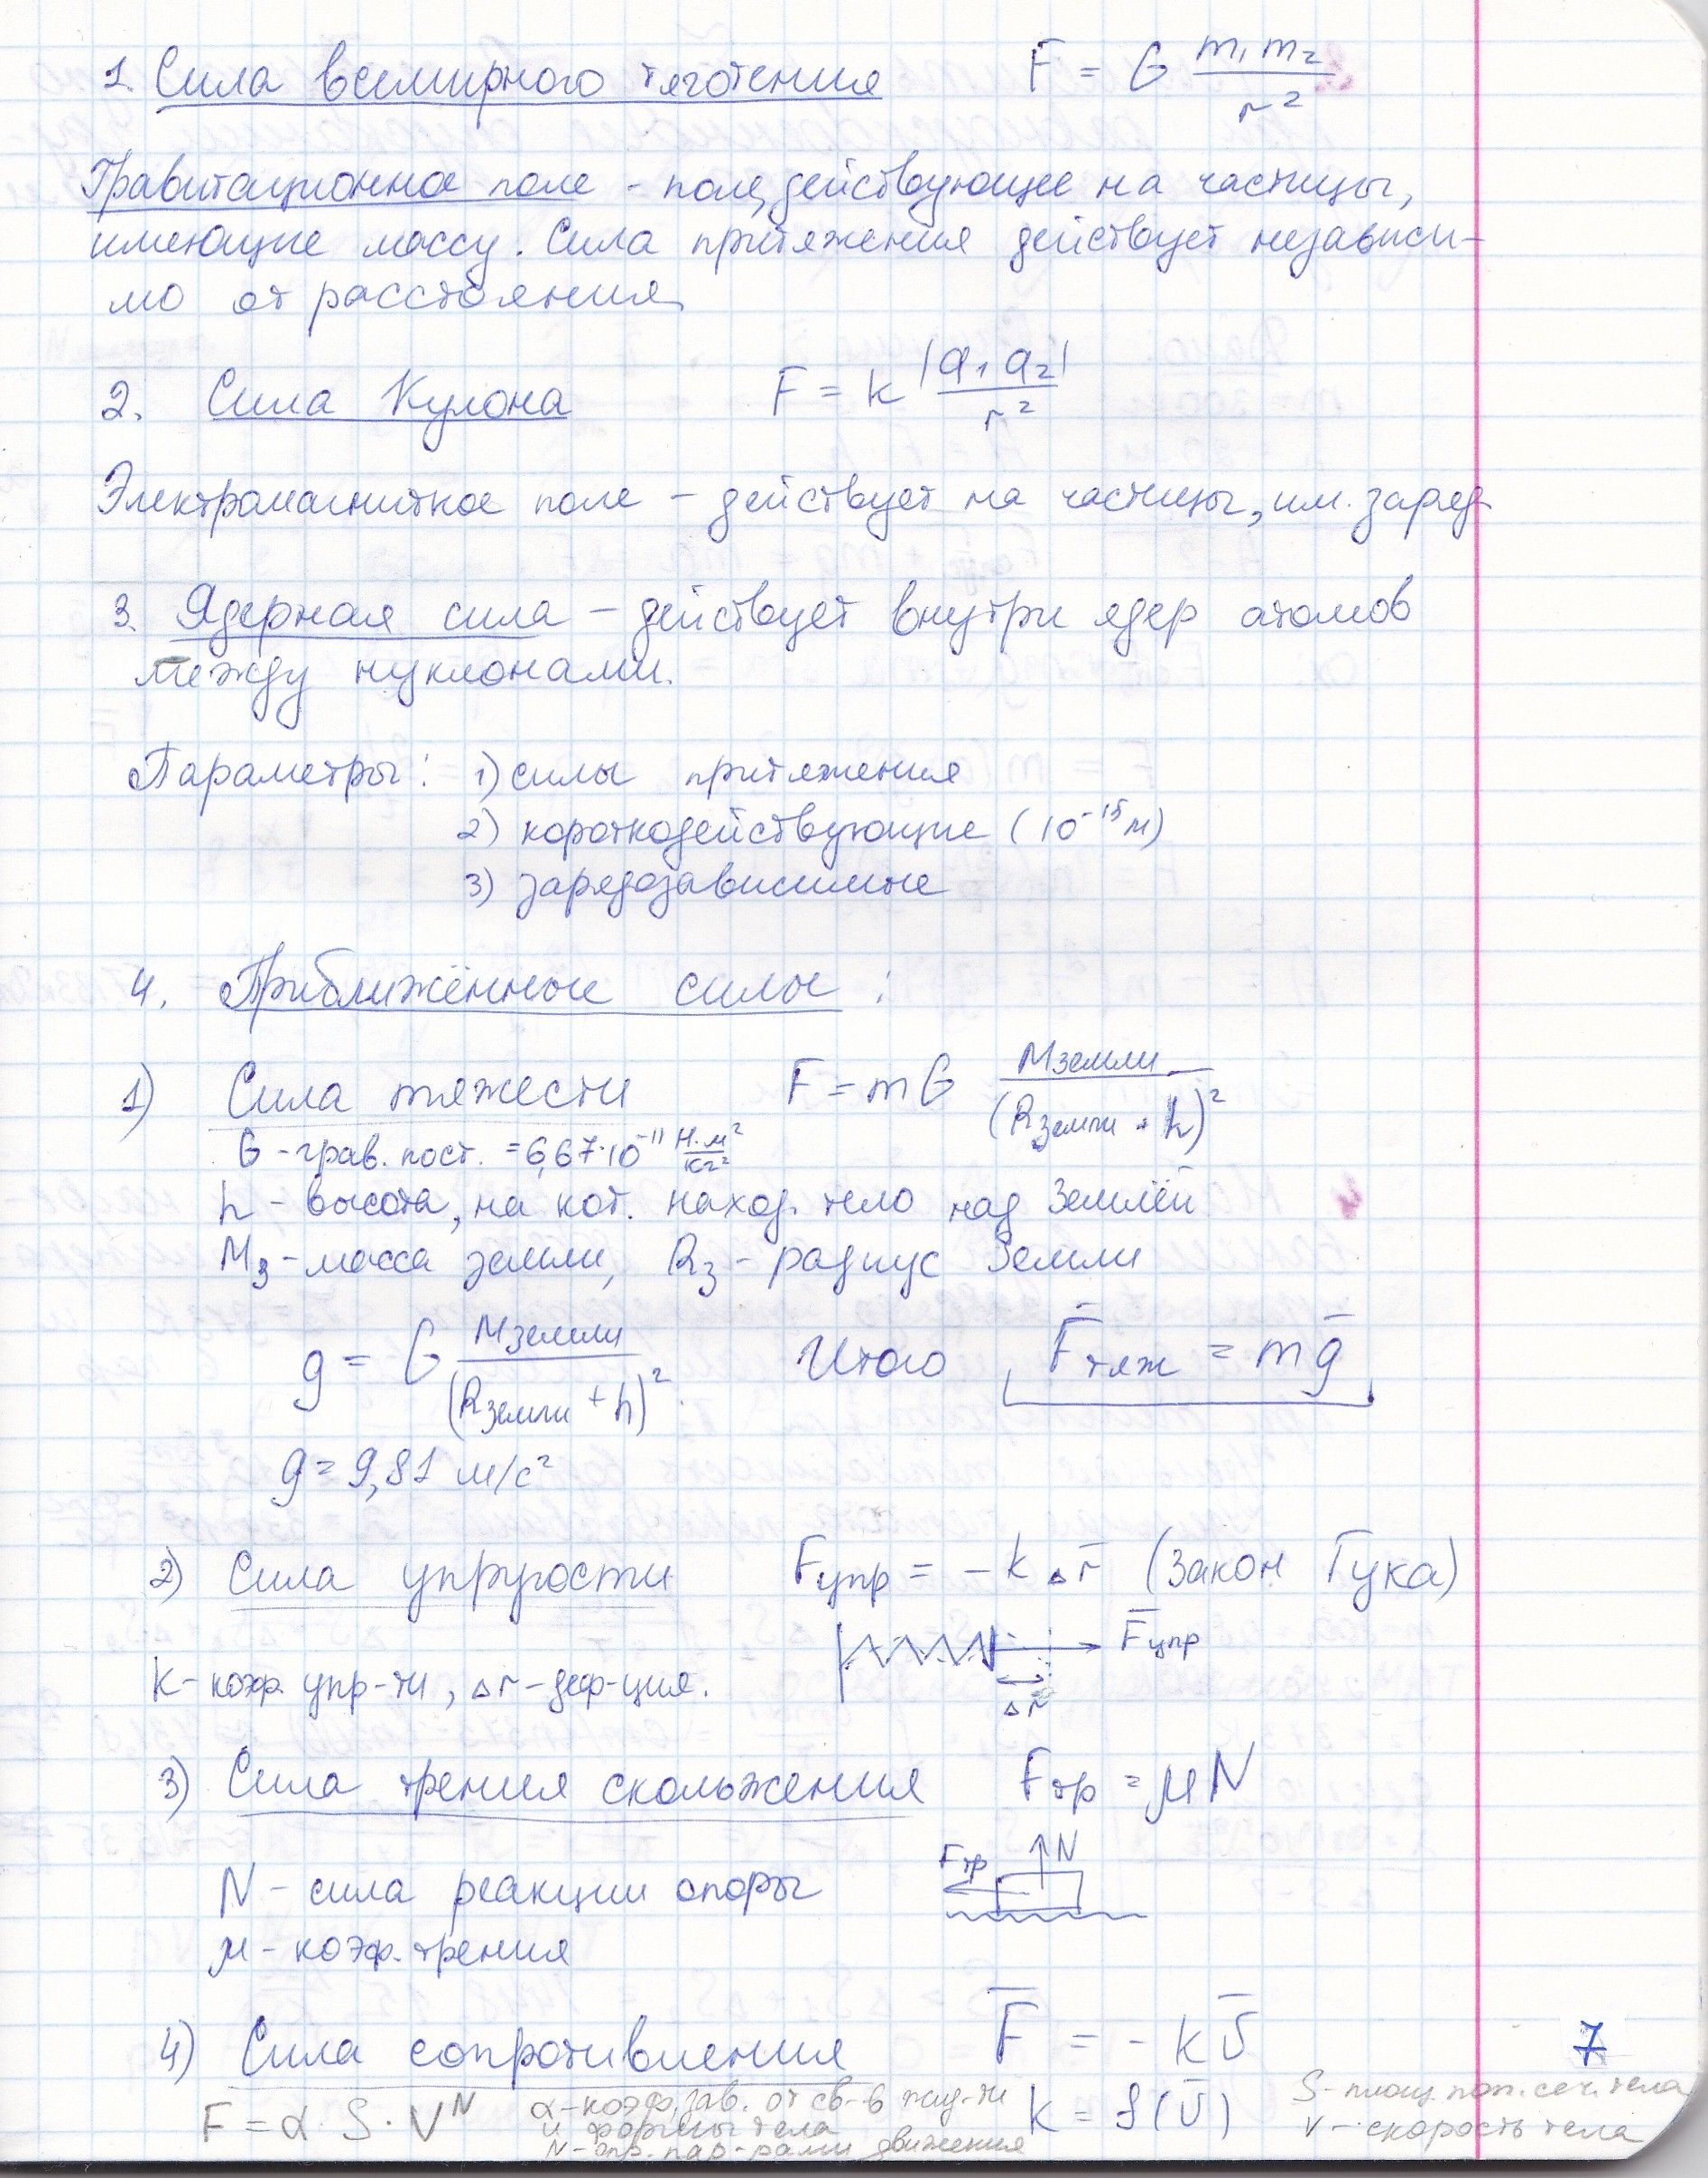 1. Сила всемирного тяготения F = G m₁m₂ / r²
Гравитационное поле - поле, действующее на частицы,
имеющие массу. Сила притяжения действует независи-
мо от расстояния
2. Сила Кулона F = k |q₁ q₂| / r²
Электромагнитное поле – действует на частицы, им. заряд
3. Ядерная сила – действует внутри ядер атомов
между нуклонами.
Параметры: 1) силы притяжения
2) короткодействующие (10⁻¹⁵м)
3) зарядозависимые
4. Приближённые силы:
1) Сила тяжести F = mG Mземли / (Rземли + h)²
G - грав. пост. = 6,67·10⁻¹¹ Н·м²/кг²
h - высота, на кот. наход. тело над Землёй
Mз - масса земли, Rз - радиус Земли
g = G Mземли / (Rземли + h)² Итого F̄тяж = mḡ
g = 9,81 м/с²
2) Сила упругости Fупр = - k Δr̄ (Закон Гука)
F̄упр
k - коэф. упр-ти, Δr - деф-ция.
Δr
3) Сила трения скольжения Fтр = μN
Fтр N
N - сила реакции опоры
μ - коэф. трения
4) Сила сопротивления F̄ = - kῡ
7
F = α · S · Vᴺ α - коэф. зав. от св-в жид-ти k = f(ῡ) S - площ. поп. сеч. тела
и формы тела V - скорость тела
N - опр. пар-рами движения